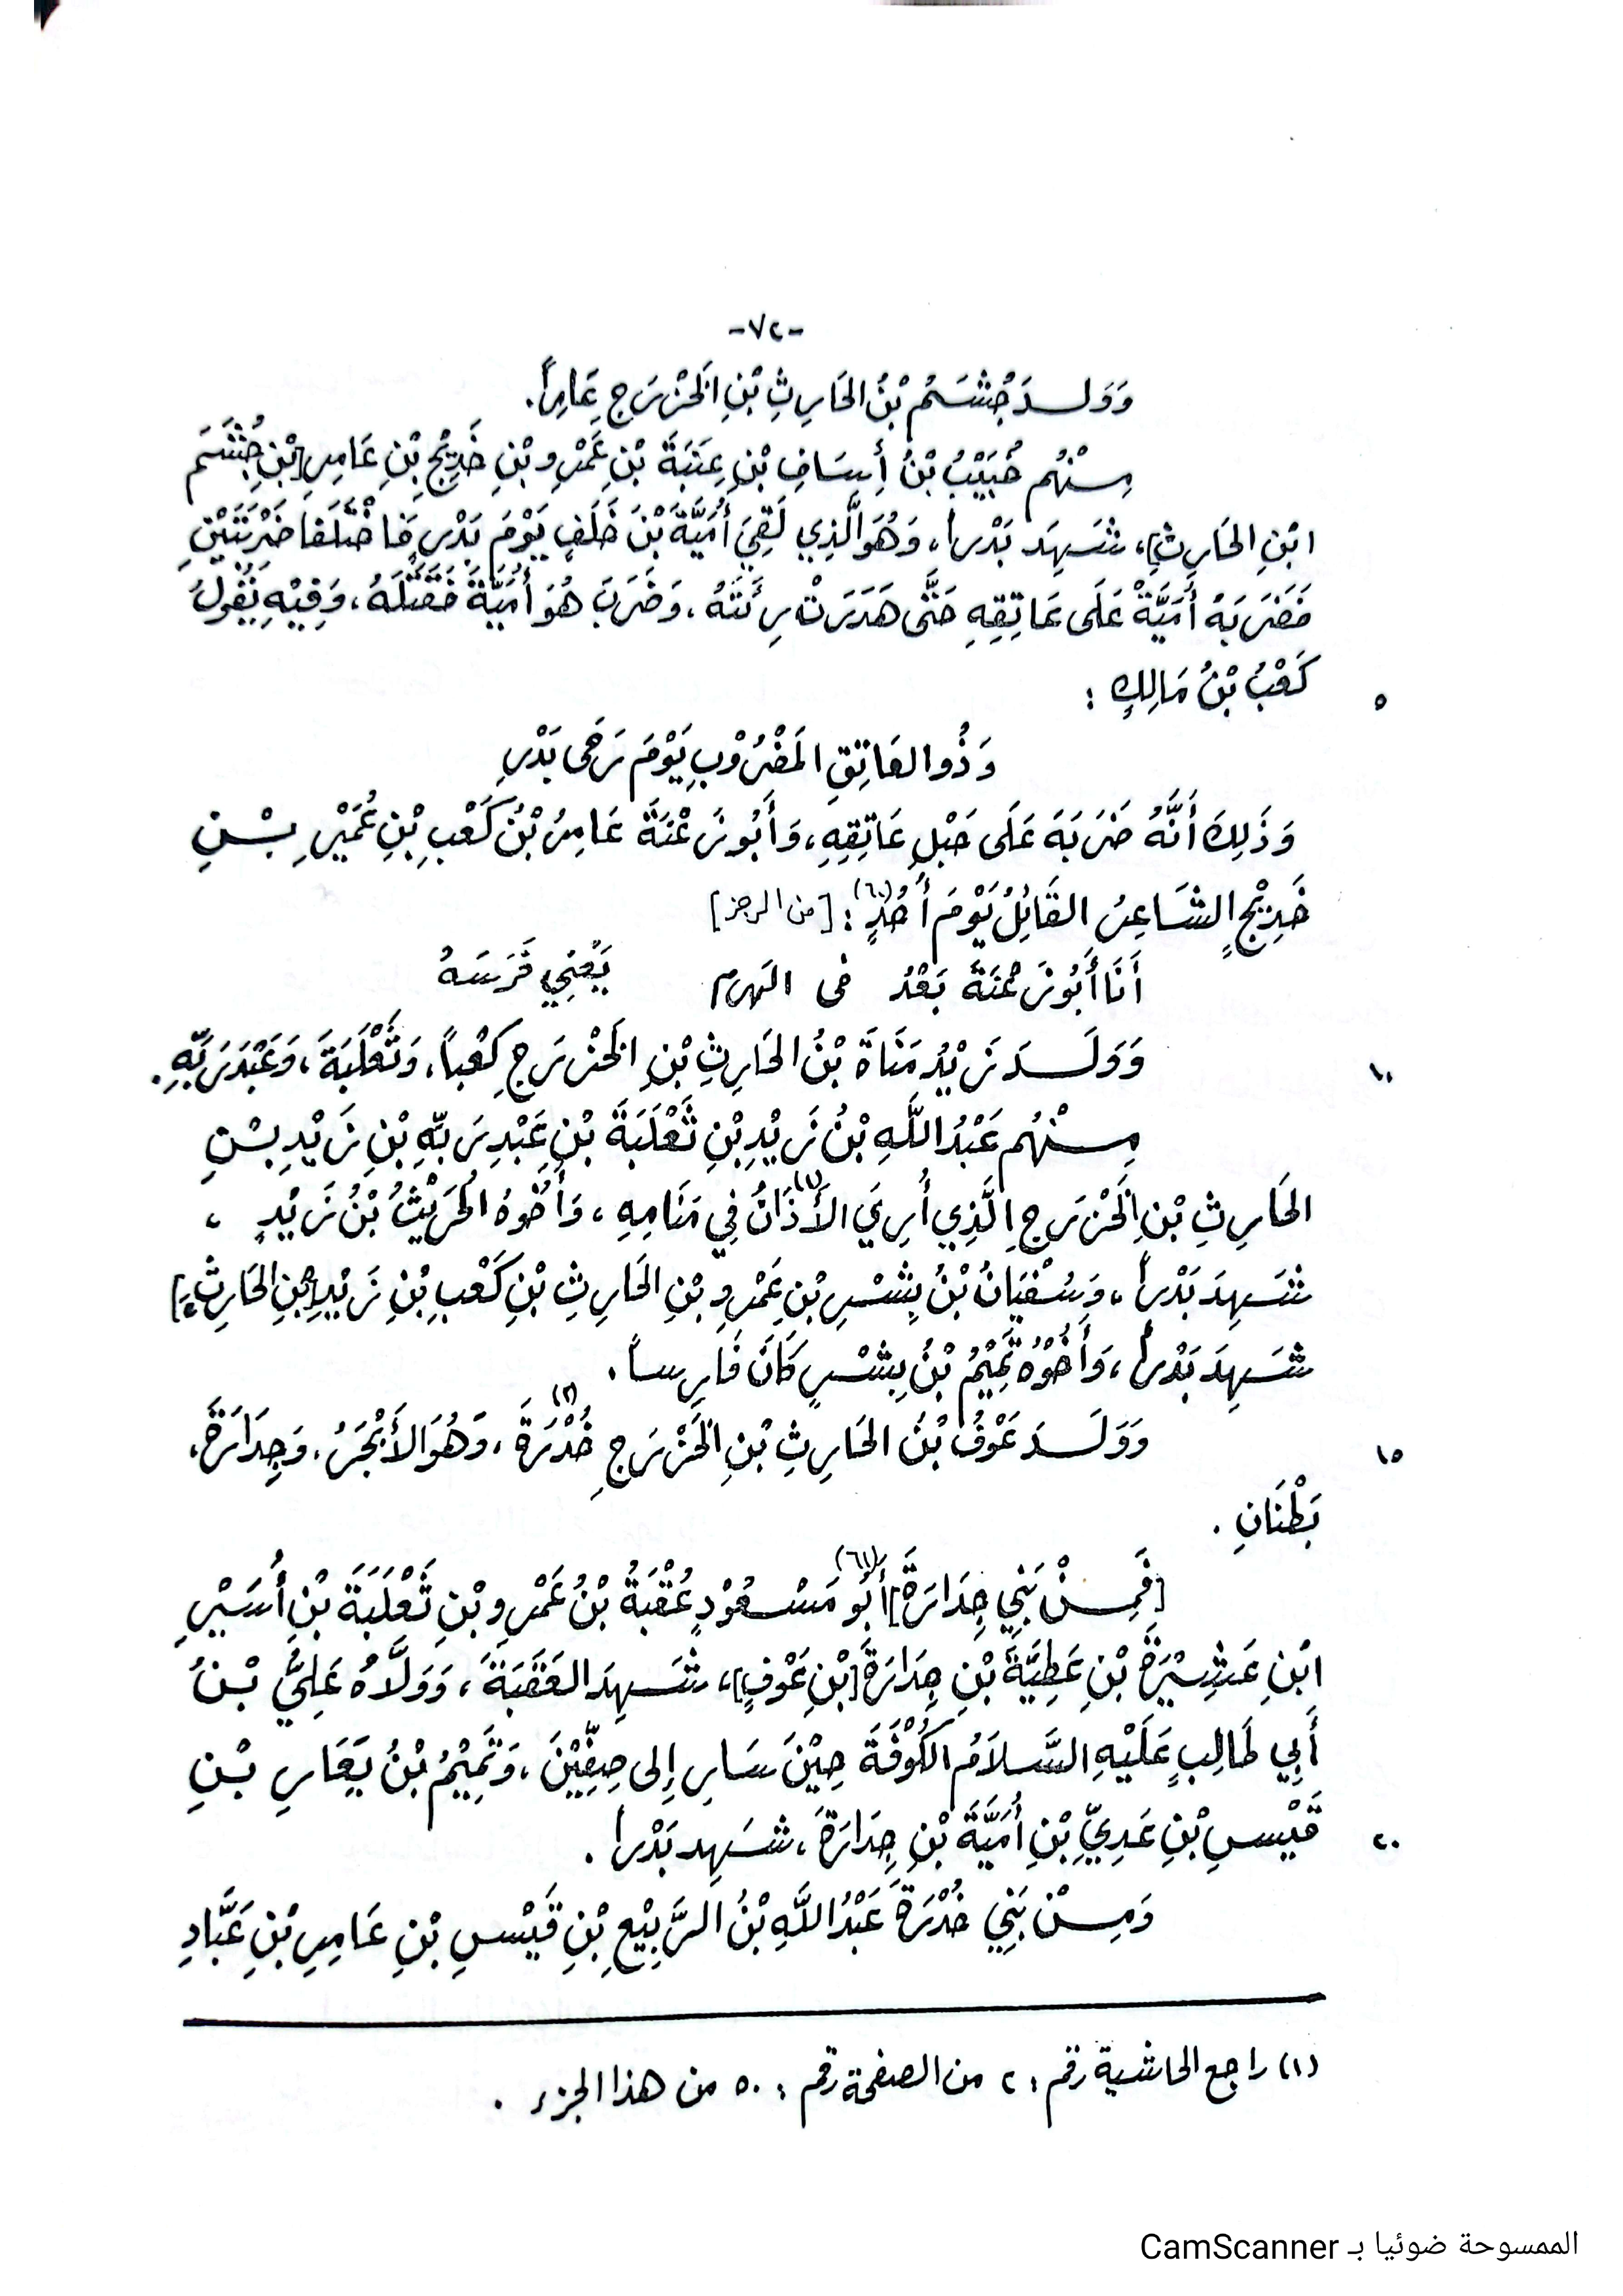 -٧٢-
وَوَلَـدَ جُشَـمُ بْنُ الحَارِثِ بْنِ الخَزْرَجِ عَامِراً.
مِـنْهُم خُبَيْبُ بْنُ أِسَافِ بْنِ عِنَبَةَ بْنِ عَمْرِو بْنِ خَدِيْجِ بْنِ عَامِرِ[بْنِ جُشَـمَ
ابْنِ الحَارِثِ]، شَـهِدَ بَدْراً، وَهُوَ الَّذِي لَقِيَ أُمَيَّةَ بْنَ خَلَفٍ يَوْمَ بَدْرٍ فَاخْتَلَفَا ضَرْبَتَيْنِ
فَضَرَبَهُ أُمَيَّةُ عَلَى عَاتِقِهِ حَتَّى هَدَرَتْ رِئَتَهُ، وَضَرَبَ هُوَ أُمَيَّةَ فَقَتَلَهُ، وَفِيْهِ يَقُولُ
٥ كَعْبُ بْنُ مَالِكٍ :
وَذُو العَاتِقِ المَضْرُوْبِ يَوْمَ رَحَى بَدْرِ
وَذَلِكَ أَنَّهُ ضَرَبَهُ عَلَى حَبْلِ عَاتِقِهِ، وَأَبُو زَعْنَةَ عَامِرُ بْنُ كَعْبِ بْنِ عُمَيْرِ بْـنِ
خَدِيْجٍ الشَـاعِرُ القَائِلُ يَوْمَ أُحُدٍ(٦٠) : [من الرجز]
أَنَا أَبُو زَعْنَةَ بَعْدُ فى الهرم يَعْنِي فَرَسَـهُ
١٠ وَوَلَـدَ زَيْدُ مَنَاةَ بْنُ الحَارِثِ بْنِ الخَزْرَجِ كَعْباً، وَثَعْلَبَةَ، وَعَبْدَ رَبِّهِ.
مِـنْهُم عَبْدُ اللَّهِ بْنُ زَيْدِ بْنِ ثَعْلَبَةَ بْنِ عَبْدِ رَبِّهِ بْنِ زَيْدِ بْـنِ
الحَارِثِ بْنِ الخَزْرَجِ الَّذِي أُرِيَ الأَذَانَ(١) فِي مَنَامِهِ، وَأَخُوْهُ الحُرَيْثُ بْنُ زَيْدٍ ،
شَـهِدَ بَدْراً، وَسُـفْيَانُ بْنُ بِشْـرِ بْنِ عَمْرِو بْنِ الحَارِثِ بْنِ كَعْبِ بْنِ زَيْدِ[بْنِ الحَارِثِ]
شَـهِدَ بَدْراً، وَأَخُوْهُ تَمِيْمُ بْنُ بِشْـرٍ كَانَ فَارِسـاً.
١٥ وَوَلَـدَ عَوْفُ بْنُ الحَارِثِ بْنِ الخَزْرَجِ خُدْرَةَ(٢)، وَهُوَ الأَبْجَرُ، وَجِدَارَةَ،
بَطْنَانِ .
[فَمِـنْ بَنِي جِدَارَةَ] أَبُو(٦١) مَسْـعُوْدٍ عُقْبَةُ بْنُ عَمْرِو بْنِ ثَعْلَبَةَ بْنِ أُسَـيْرِ
ابْنِ عَسِيْرَةَ بْنِ عَطِيَّةَ بْنِ جِدَارَةَ[بْنِ عَوْفٍ]، شَـهِدَ العَقَبَةَ، وَوَلَّاهُ عَلِيُّ بْـنُ
أَبِي طَالِبٍ عَلَيْهِ السَّلاَمُ الكُوْفَةَ حِيْنَ سَارِ إِلى صِفِّيْنَ، وَتَمِيْمُ بْنُ يَعَارِ بْـنِ
٢٠ قَيْسِ بْنِ عَدِيِّ بْنِ أُمَيَّةَ بْنِ جِدَارَةَ، شَـهِدَ بَدْراً .
وَمِـنْ بَنِي خُدْرَةَ عَبْدُ اللَّهِ بْنُ الرَّبِيْعِ بْنِ قَيْسِ بْنِ عَامِرِ بْنِ عَبَّادِ
(١) راجع الحاشية رقم : ٢ من الصفحة رقم : ٥٠ من هذا الجزء .
الممسوحة ضوئيا بـ CamScanner